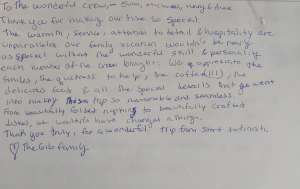 To the wonderful crew,
Thank you for making our time so special.
The warmth, service, attention to detail & hospitality are
unparallelled our family vacation wouldn't be nearly
as special without the wonderful skill & personality
each member of the crew brought. We appreciate the
smiles, the quickness to help, the coffee(!!), the
delicious food & all the special details that went
into making this trip so memorable and seamless.
From beautifully folded napkins to beautifully crafted
dishes, we wouldn't have changed a thing.
Thank you truly, for a wonderful trip from start to finish.
♡ The Family